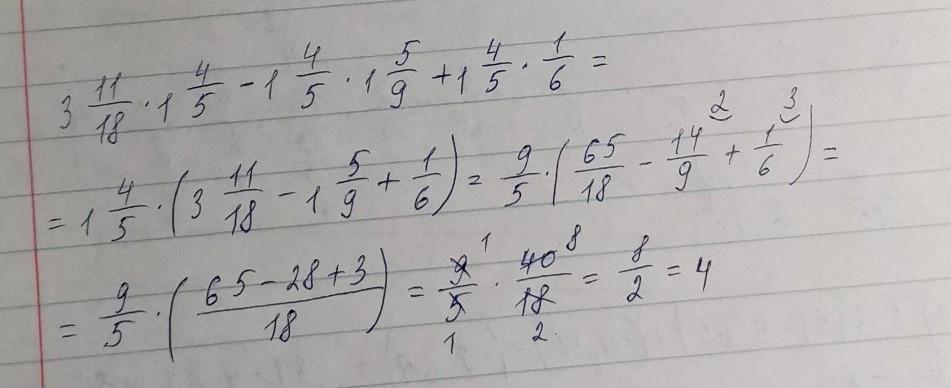 3 11/18 · 1 4/5 - 1 4/5 · 1 5/9 + 1 4/5 · 1/6 =
= 1 4/5 · (3 11/18 - 1 5/9 + 1/6) = 9/5 · (65/18 - 14/9 ² + 1/6 ³) =
= 9/5 · ((65 - 28 + 3)/18) = 9/5 ¹ ₁ · 40/18 ⁸ ₂ = 8/2 = 4